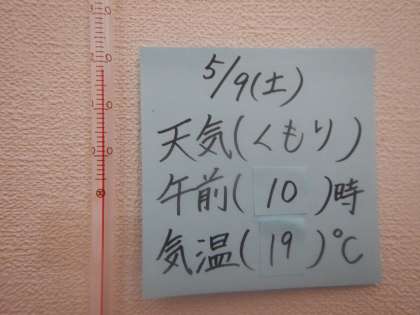 5/9(土)
天気(くもり)
午前(10)時
気温(19)℃